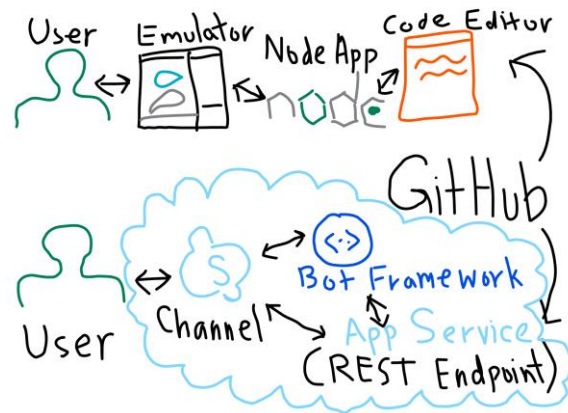 User
Emulator
Node App
Code Editor
node
GitHub
User
S
Channel
Bot Framework
App Service
(REST Endpoint)